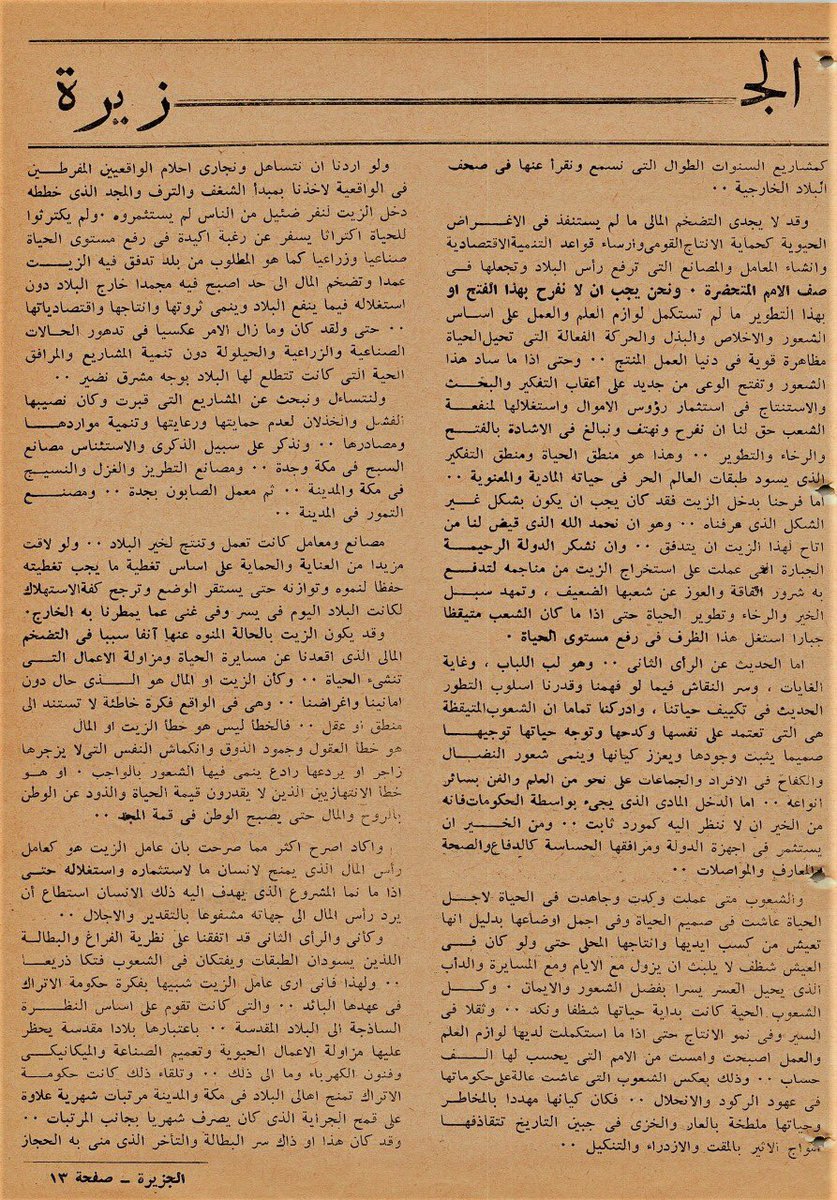 الجـزيرة
كمشاريع السنوات الطوال التى نسمع ونقرأ عنها فى صحف
البلاد الخارجية ٠٠
وقد لا يجدى التضخم المالى ما لم يستنفذ فى الاغـــراض
الحيوية كحماية الانتاج القومى وارساء قواعد التنمية الاقتصادية
وانشاء المعامل والمصانع التى ترفع رأس البلاد وتجعلها فـى
صف الامم المتحضرة ٠ ونحن يجب ان لا نفرح بهذا الفتح او
بهذا التطوير ما لم تستكمل لوازم العلم والعمل على اســاس
الشعور والاخلاص والبذل والحركة الفعالة التى تحيل الحياة
مظاهرة قوية فى دنيا العمل المنتج ٠٠ وحتى اذا ما ساد هذا
الشعور وتفتح الوعى من جديد على أعقاب التفكير والبحث
والاستنتاج فى استثمار رؤوس الاموال واستغلالها لمنفعة
الشعب حق لنا ان نفرح ونهتف ونبالغ فى الاشادة بالفتـح
والرخاء والتطوير ٠٠ وهذا هو منطق الحياة ومنطق التفكير
الذى يسود طبقات العالم الحر فى حياته المادية والمعنوية ٠٠
أما فرحنا بدخل الزيت فقد كان يجب ان يكون بشكل غـير
الشكل الذى عرفناه ٠٠ وهو ان نحمد الله الذى قيض لنا من
اتاح لهذا الزيت ان يتدفق ٠٠ وان نشكر الدولة الرحيمـة
الجبارة التى عملت على استخراج الزيت من مناجمه لتدفـع
به شرور الفاقة والعوز عن شعبها الضعيف ، وتمهد سبــل
الخير والرخاء وتطوير الحياة حتى اذا ما كان الشعب متيقظا
جبارا استغل هذا الظرف فى رفع مستوى الحياة ٠
اما الحديث عن الرأى الثانى ٠٠ وهو لب اللباب ، وغاية
الغايات ، وسر النقاش فيما لو فهمنا وقدرنا اسلوب التطور
الحديث فى تكييف حياتنا ، وادركنا تماما ان الشعوب المتيقظة
هى التى تعتمد على نفسها وكدحها وتوجه حياتها توجيهــا
صميما يثبت وجودها ويعزز كيانها وينمى شعور النضـال
والكفاح فى الافراد والجماعات على نحو من العلم والفن بسائر
انواعه ٠٠ اما الدخل المادى الذى يجىء بواسطة الحكومات فانه
من الخير ان لا ننظر اليه كمورد ثابت ٠٠ ومن الخــير ان
يستثمر فى اجهزة الدولة ومرافقها الحساسة كالدفاع والصحة
والمعارف والمواصلات ٠٠
والشعوب متى عملت وكدت وجاهدت فى الحياة لاجـل
الحياة عاشت فى صميم الحياة وفى اجمل اوضاعها بدليل انها
تعيش من كسب ايديها وانتاجها المحلى حتى ولو كان فــى
العيش شظف لا يلبث ان يزول مع الايام ومع المسايرة والدأب
الذى يحيل العسر يسرا بفضل الشعور والايمان ٠ وكــل
الشعوب الحية كانت بداية حياتها شظفا ونكد ٠٠ وثقلا فى
السير وفى نمو الانتاج حتى اذا ما استكملت لديها لوازم العلم
والعمل اصبحت وامست من الامم التى يحسب لها الــف
حساب ٠٠ وذلك بعكس الشعوب التى عاشت عالة على حكوماتها
فى عهود الركود والانحلال ٠٠ فكان كيانها مهددا بالمخاطر
وحياتها ملطخة بالعار والخزى فى جبين التاريخ تتقاذفهـا
امواج الاثير بالمقت والازدراء والتنكيل ٠٠
ولو اردنا ان نتساهل ونجارى احلام الواقعيين المفرطـين
فى الواقعية لاخذنا بمبدأ الشغف والترف والمجد الذى خططه
دخل الزيت لنفر ضئيل من الناس لم يستثمروه ٠ ولم يكترثوا
للحياة اكتراثا يسفر عن رغبة اكيدة فى رفع مستوى الحياة
صناعيا وزراعيا كما هو المطلوب من بلد تدفق فيه الزيـت
عمدا وتضخم المال الى حد اصبح فيه مجمدا خارج البلاد دون
استغلاله فيما ينفع البلاد وينمى ثروتها وانتاجها واقتصادياتها
٠٠ حتى ولقد كان وما زال الامر عكسيا فى تدهور الحـالات
الصناعية والزراعية والحيلولة دون تنمية المشاريع والمرافق
الحية التى كانت تتطلع لها البلاد بوجه مشرق نضير ٠٠
ولنتساءل ونبحث عن المشاريع التى قبرت وكان نصيبها
الفشل والخذلان لعدم حمايتها ورعايتها وتنمية مواردهـا
ومصادرها ٠٠ ونذكر على سبيل الذكرى والاستئناس مصانع
السبح فى مكة وجدة ٠٠ ومصانع التطريز والغزل والنسيـج
فى مكة والمدينة ٠٠ ثم معمل الصابون بجدة ٠٠ ومصنــع
التمور فى المدينة ٠٠
مصانع ومعامل كانت تعمل وتنتج لخير البلاد ٠٠ ولو لاقت
مزيدا من العناية والحماية على اساس تغطية ما يجب تغطيته
حفظا لنموه وتوازنه حتى يستقر الوضع وترجح كفة الاستهلاك
لكانت البلاد اليوم فى يسر وفى غنى عما يمطرنا به الخارج٠
وقد يكون الزيت بالحالة المنوه عنها آنفا سببا فى التضخم
المالى الذى اقعدنا عن مسايرة الحياة ومزاولة الاعمال التــى
تنشىء الحياة ٠٠ وكأن الزيت او المال هو الــذى حال دون
امانينا واغراضنا ٠٠ وهى فى الواقع فكرة خاطئة لا تستند الى
منطق أو عقل ٠٠ فالخطأ ليس هو خطأ الزيت او المال
هو خطأ العقول وجمود الذوق وانكماش النفس التى لا يزجرها
زاجر او يردعها رادع ينمى فيها الشعور بالواجب ٠ او هـو
خطأ الانتهازيين الذين لا يقدرون قيمة الحياة والذود عن الوطن
بالروح والمال حتى يصبح الوطن فى قمة المجد ٠٠
واكاد اصرح اكثر مما صرحت بان عامل الزيت هو كعامل
رأس المال الذى يمنح لانسان ما لاستثماره واستغلاله حتى
اذا ما نما المشروع الذى يهدف اليه ذلك الانسان استطاع أن
يرد رأس المال الى جهاته مشفوعا بالتقدير والاجلال ٠٠
وكأنى والرأى الثانى قد اتفقنا على نظرية الفراغ والبطالة
اللذين يسودان الطبقات ويفتكان فى الشعوب فتكا ذريعـا
٠٠ ولهذا فانى ارى عامل الزيت شبيها بفكرة حكومة الاتراك
فى عهدها البائد ٠٠ والتى كانت تقوم على اساس النظـرة
الساذجة الى البلاد المقدسة ٠٠ باعتبارها بلادا مقدسة يحظر
عليها مزاولة الاعمال الحيوية وتعميم الصناعة والميكانيكـى
وفنون الكهرباء وما الى ذلك ٠٠ وتلقاء ذلك كانت حكومـة
الاتراك تمنح اهالى البلاد فى مكة والمدينة مرتبات شهرية علاوة
على قمح الجراية الذى كان يصرف شهريا بجانب المرتبات ٠٠
وقد كان هذا او ذاك سر البطالة والتأخر الذى منى به الحجاز
الجزيرة ــ صفحة ١٣